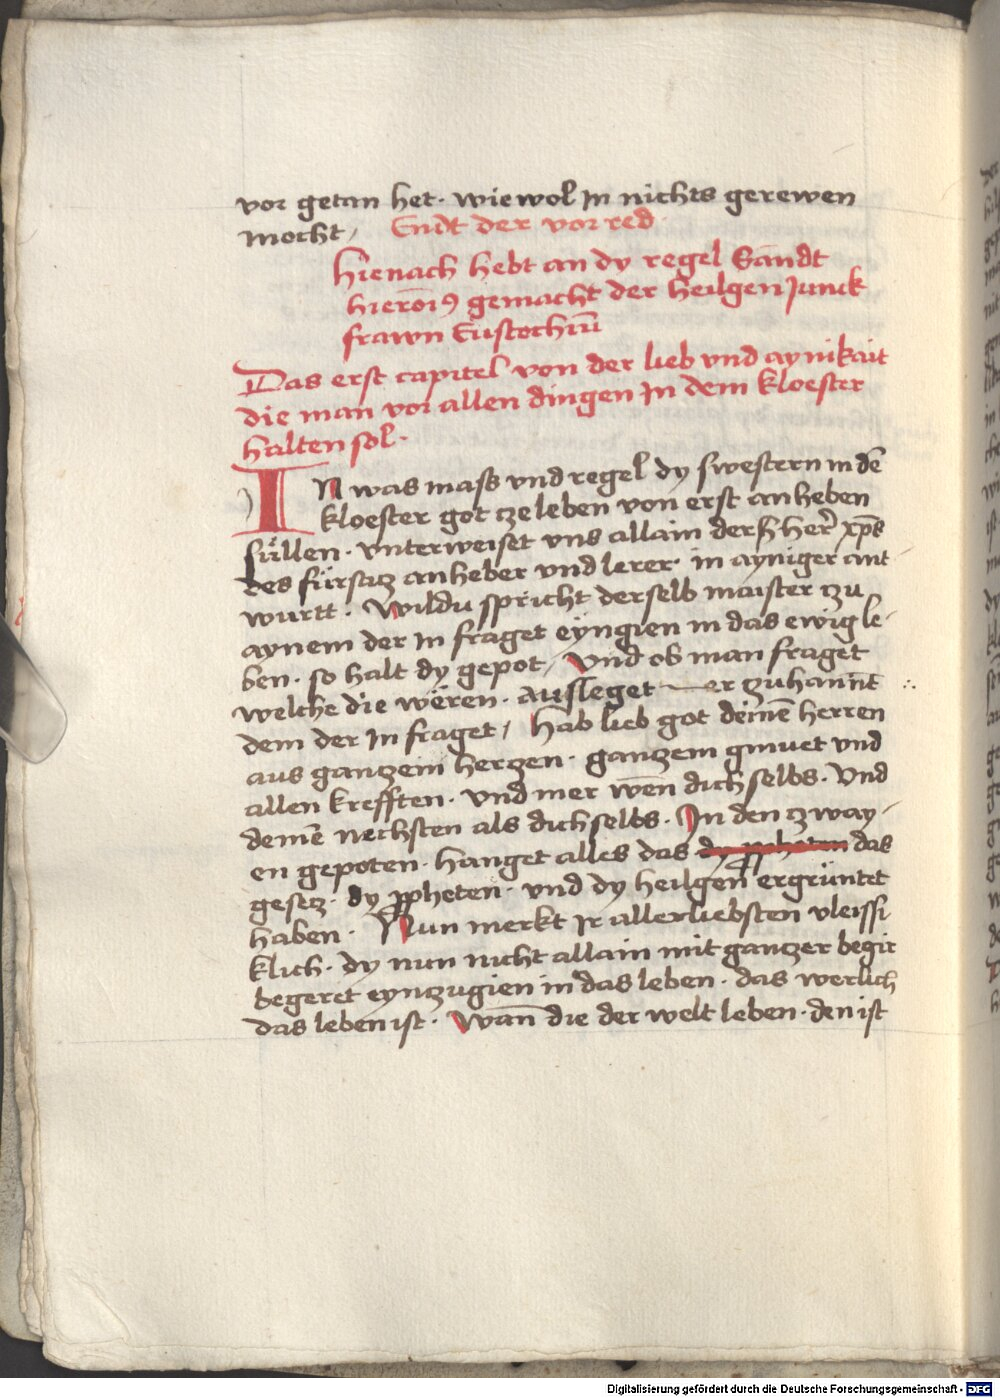 vor getan het · wiewol In nichts gerewen
mocht / Endt der vor red
Hienach hebt an dy regel Sandt
hieroīꝰ gemacht der heilgen Junck
frawn Eustochiū
Das erst capitel von der lieb vnd aynikait
die man vor allen dingen In dem kloester
halten sol ·
IN was mass vnd regel dy swestern in dē
kloester got cze leben von erst anheben
süllen · vnterweiset vns allain der herr̄ xp̄s
des fürsacz anheber vnd lerer · in ayniger ant
wurtt · Wildu spricht derselb maister czu
aynem der In fraget eyngien in das ewig le
ben · so halt dy gepot / Vnd ob man fraget
welche die wëren · ausleget er zuhannt
dem der In fraget / Hab lieb got deinē herren
aus ganczem herczen · ganczem gmuet vnd
allen krefften · vnd mer wēn dich selbs · Vnd
deinē nechsten als dich selbs · In den czway
en gepoten · hanget alles das dy ꝓpheten das
gesecz · dy ꝓpheten · vnd dy heilgen ergrüntet
haben · Nun merkt Ir allerliebsten vleissi
klich · dy nun nicht allain mit gantzer begir
begeret eynczugien in das leben · das werlich
das leben ist · Wan̄ die der welt leben · den ist
Digitalisierung gefördert durch die Deutsche Forschungsgemeinschaft - DFG